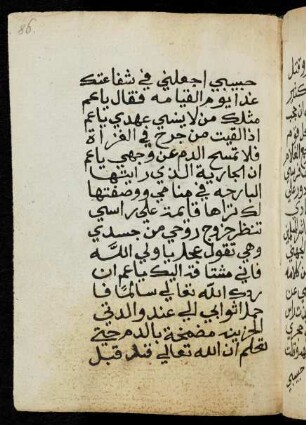 86
حبيبي اجعلني في شفاعتك
غدا يوم القيامه فقال يا عم
مثلك من لا ينسي عهدي يا عم
اذا لقيت من جرح في الغزاة
فلا تمسح الدم عن وجهي يا عم
ان الجارية الذي رايتها
البارحه في منامي ووصفتها
لك تراها قايمة علي راسي
تنظر خروج روحي من جسدي
وهي تقول عجل يا ولي الله
فاني مشتاقة اليك يا عم ان
ردك الله تعالي سالما فا
حمل اثوابي الي عند والدتي
الحزينه مضمخة بالدم حتي
تعلم ان الله تعالي قد قبل